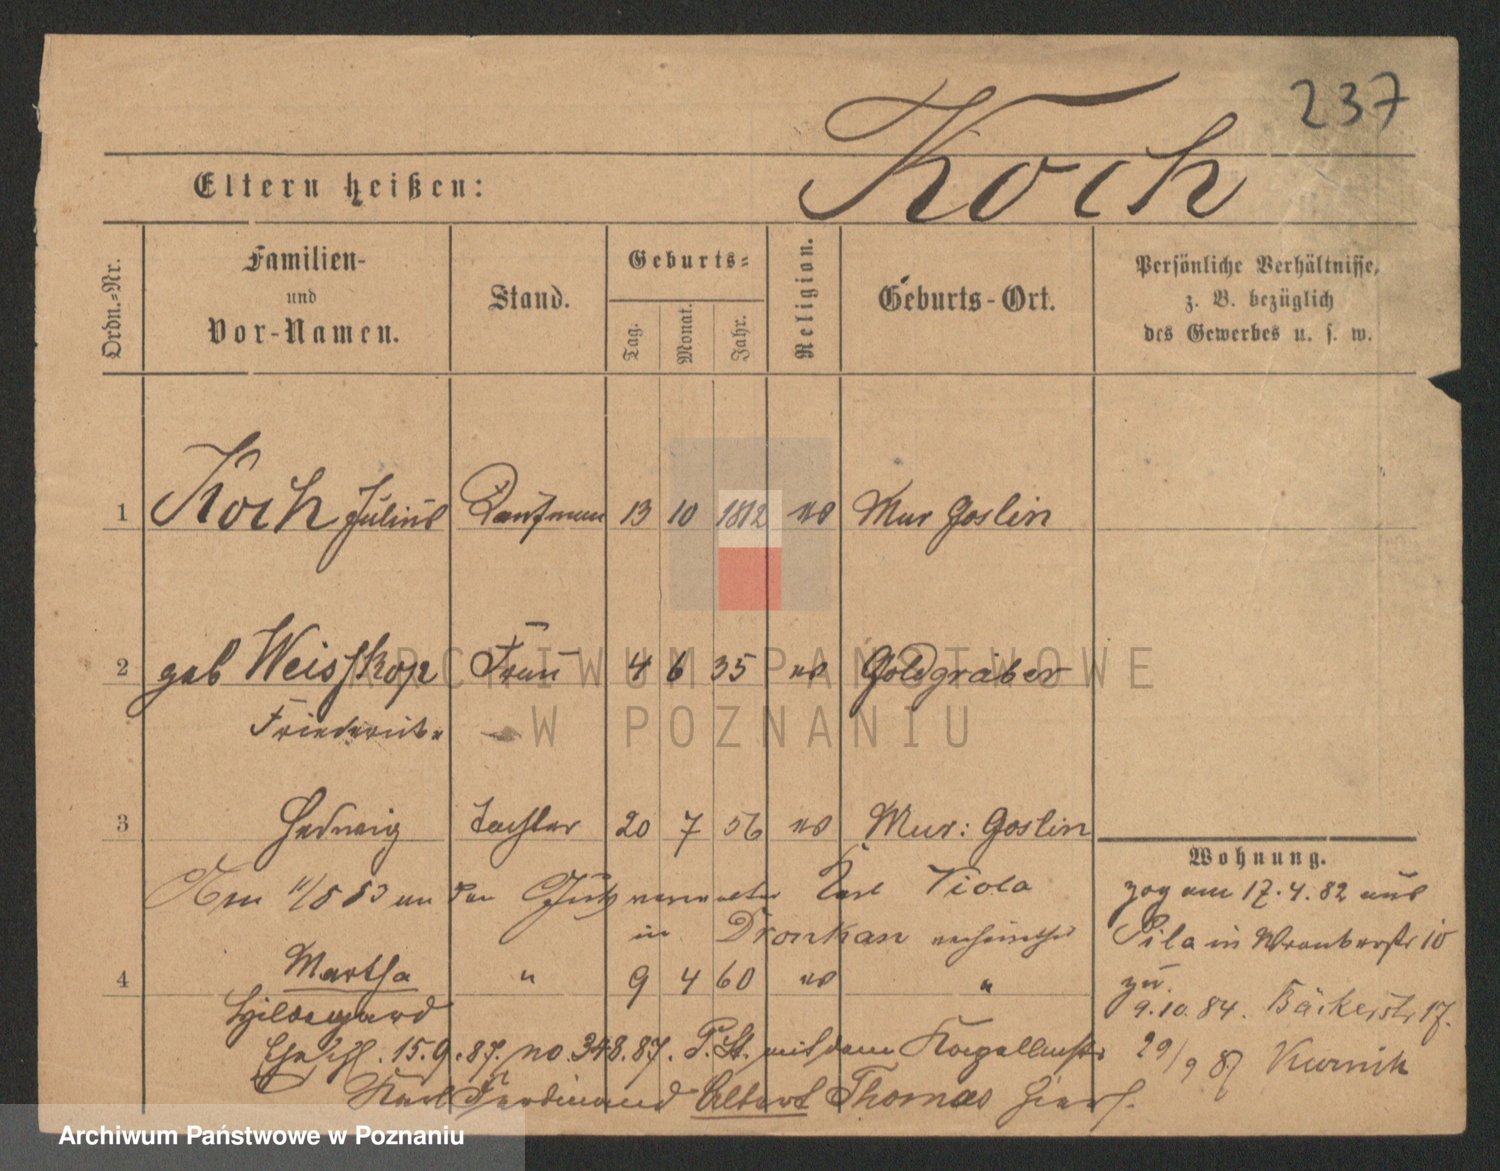 237
Koch
Eltern heißen:
Ordn.-Nr.
Familien-
und
Vor-Namen.
Stand.
Geburts-
Tag.
Monat.
Jahr.
Religion.
Geburts-Ort.
Persönliche Verhältnisse,
z. B. bezüglich
des Gewerbes u. s. w.
1 Koch Julius Kaufmann 13 10 1812 ev Mur Goslin
2 geb Weisskopf Frau 4 6 35 ev Goldgräber
Friederike
3 Hedwig Tochter 20 7 56 ev Mur: Goslin
Wohnung.
Am 11/8 83 an den Karl Viola
in Dronkan verheirathet
zog am 17.4.82 aus
Pila in 10
zu.
4 Martha " 9 4 60 ev "
Hildegard
9.10.84. Bäckerstr 17.
Eheschl. 15.9.87. no. 348.87. P. St. mit dem
29/9 87 Kurnik
Karl Ferdinand Albert Thomas hier.
ARCHIWUM PAŃSTWOWE
W POZNANIU
Archiwum Państwowe w Poznaniu